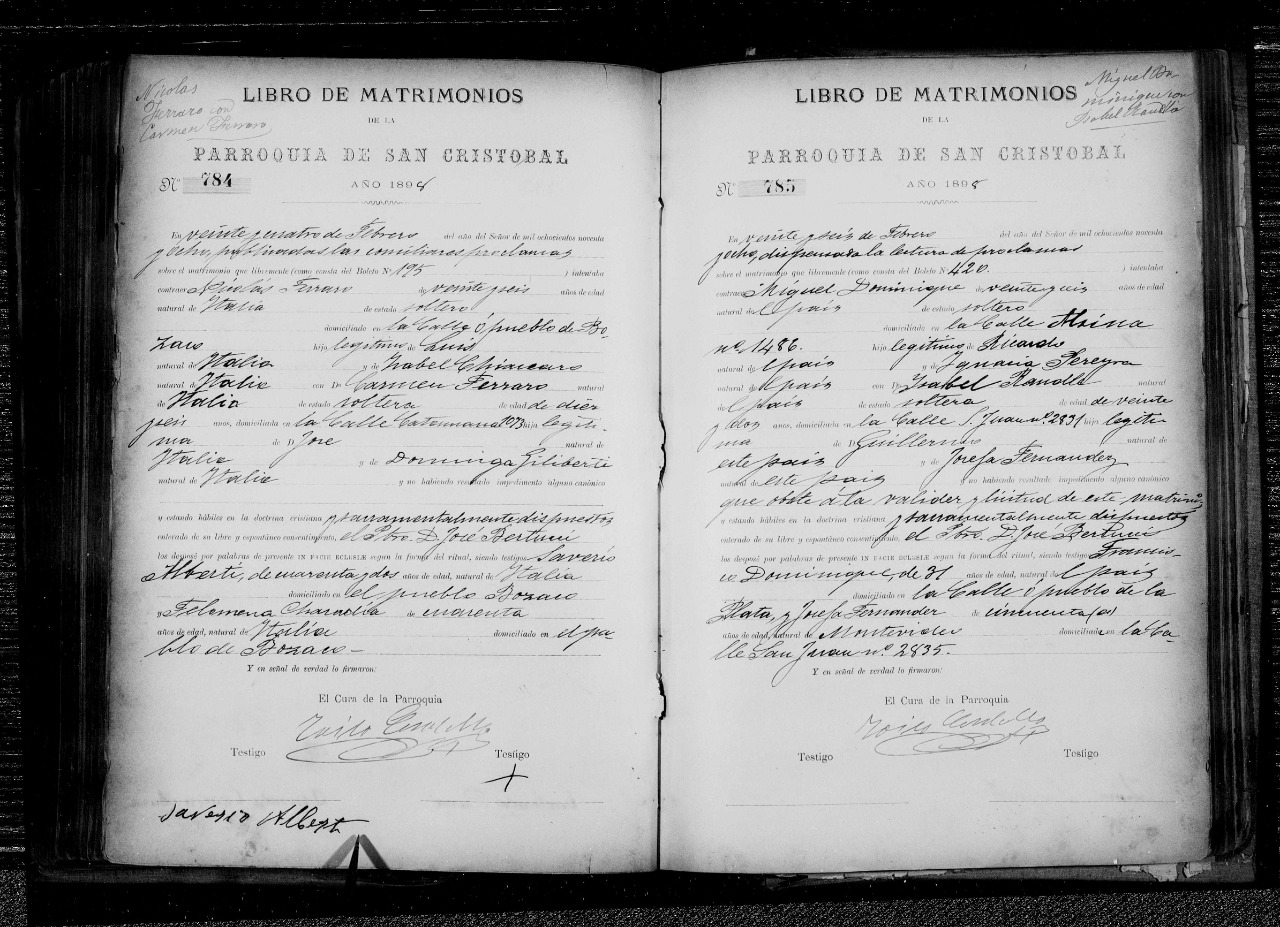 Nicolas
Ferraro con
Carmen Ferraro
LIBRO DE MATRIMONIOS
DE LA
PARROQUIA DE SAN CRISTOBAL
Nº 784
AÑO 1898
En veinte y cuatro de Febrero del año del Señor de mil ochocientos noventa
y ocho, publicadas las conciliares proclamas
sobre el matrimonio que libremente (como consta del Boleto Nº 195 ) intentaba
contraer Nicolás Ferraro de veinte y seis años de edad
natural de Italia de estado soltero
domiciliado en la Calle ó pueblo de Bo
zaco hijo legítimo de Luis
natural de Italia y de Isabel Chiaccaro
natural de Italia con Dª Carmen Ferraro natural
de Italia de estado soltera de edad de diez
y seis años, domiciliada en la Calle Catamarca 1073 hija legíti-
ma de D José natural de
Italia y de Dominga Giliberti
natural de Italia y no habiendo resultado impedimento alguno canónico
y estando hábiles en la doctrina cristiana y sacramentalmente dispuestos
enterado de su libre y espontáneo consentimiento, el Pbro. D. José Bertucci
los desposé por palabras de presente IN FACIE ECLESLE segun la forma del ritual, siendo testigos Saverio
Alberti, de cuarenta y dos años de edad, natural de Italia
domiciliado en el pueblo Bozaco
y Filomena de cuarenta
años de edad, natural de Italia domiciliado en el pue
blo de Bozaco—
Y en señal de verdad lo firmaron:
El Cura de la Parroquia
Testigo Testigo
+
Saverio Albert
Miguel Do-
minique con
Isabel Randle
LIBRO DE MATRIMONIOS
DE LA
PARROQUIA DE SAN CRISTOBAL
Nº 785
AÑO 1898
En veinte y seis de Febrero del año del Señor de mil ochocientos noventa
y ocho, dispensada la lectura de proclamas
sobre el matrimonio que libremente (como consta del Boleto Nº 420. ) intentaba
contraer Miguel Dominique de veinte y seis años de edad
natural del país de estado soltero
domiciliado en la Calle Alsina
nº 1486. hijo legítimo de Ricardo
natural del país y de Ignacia Pereyra
natural del país con Dª Isabel Randle natural
del país de estado soltera de edad de veinte
y dos años, domiciliada en la Calle S. Juan nº 2831 hija legíti-
ma de D Guillermo natural de
este país y de Josefa Fernandez
natural de este país y no habiendo resultado impedimento alguno canónico
que obste á la validez y licitud de este matrimº
y estando hábiles en la doctrina cristiana y sacramentalmente dispuestos
enterado de su libre y espontáneo consentimiento, el Pbro. D. José Bertucci
los desposé por palabras de presente IN FACIE ECLESLE segun la forma del ritual, siendo testigos Francis-
co Dominique, de 31 años de edad, natural del país
domiciliado en la Calle ó pueblo de la
Plata, y Josefa Fernandez de cincuenta (a)
años de edad, natural de Montevideo domiciliado en la Ca-
lle San Juan nº 2835.
Y en señal de verdad lo firmaron:
El Cura de la Parroquia
Testigo Testigo